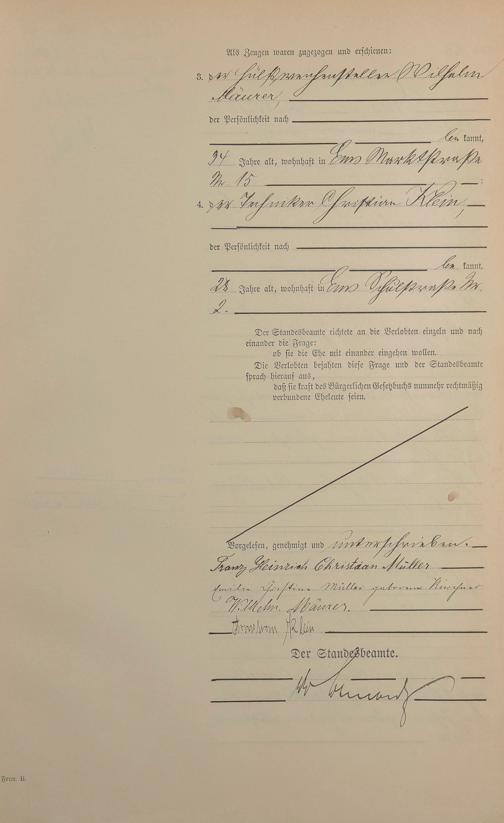 Als Zeugen waren zugezogen und erschienen:
3. der Hülfsweichensteller Wilhelm
Mäurer,
der Persönlichkeit nach
bekannt,
34 Jahre alt, wohnhaft in Ems Marktstraße
Nr 15
4. der Techniker Christian Klein,
der Persönlichkeit nach
bekannt,
28 Jahre alt, wohnhaft in Ems Schulstraße Nr.
2.
Der Standesbeamte richtete an die Verlobten einzeln und nach
einander die Frage:
ob sie die Ehe mit einander eingehen wollen.
Die Verlobten bejahten diese Frage und der Standesbeamte
sprach hierauf aus,
daß sie kraft des Bürgerlichen Gesetzbuchs nunmehr rechtmäßig
verbundene Eheleute seien.
Vorgelesen, genehmigt und unterschrieben.
Franz Heinrich Christian Müller
Emilie Christine Müller geborene Kirchner
Wilhelm Mäurer.
Klein
Der Standesbeamte.
Form. B.